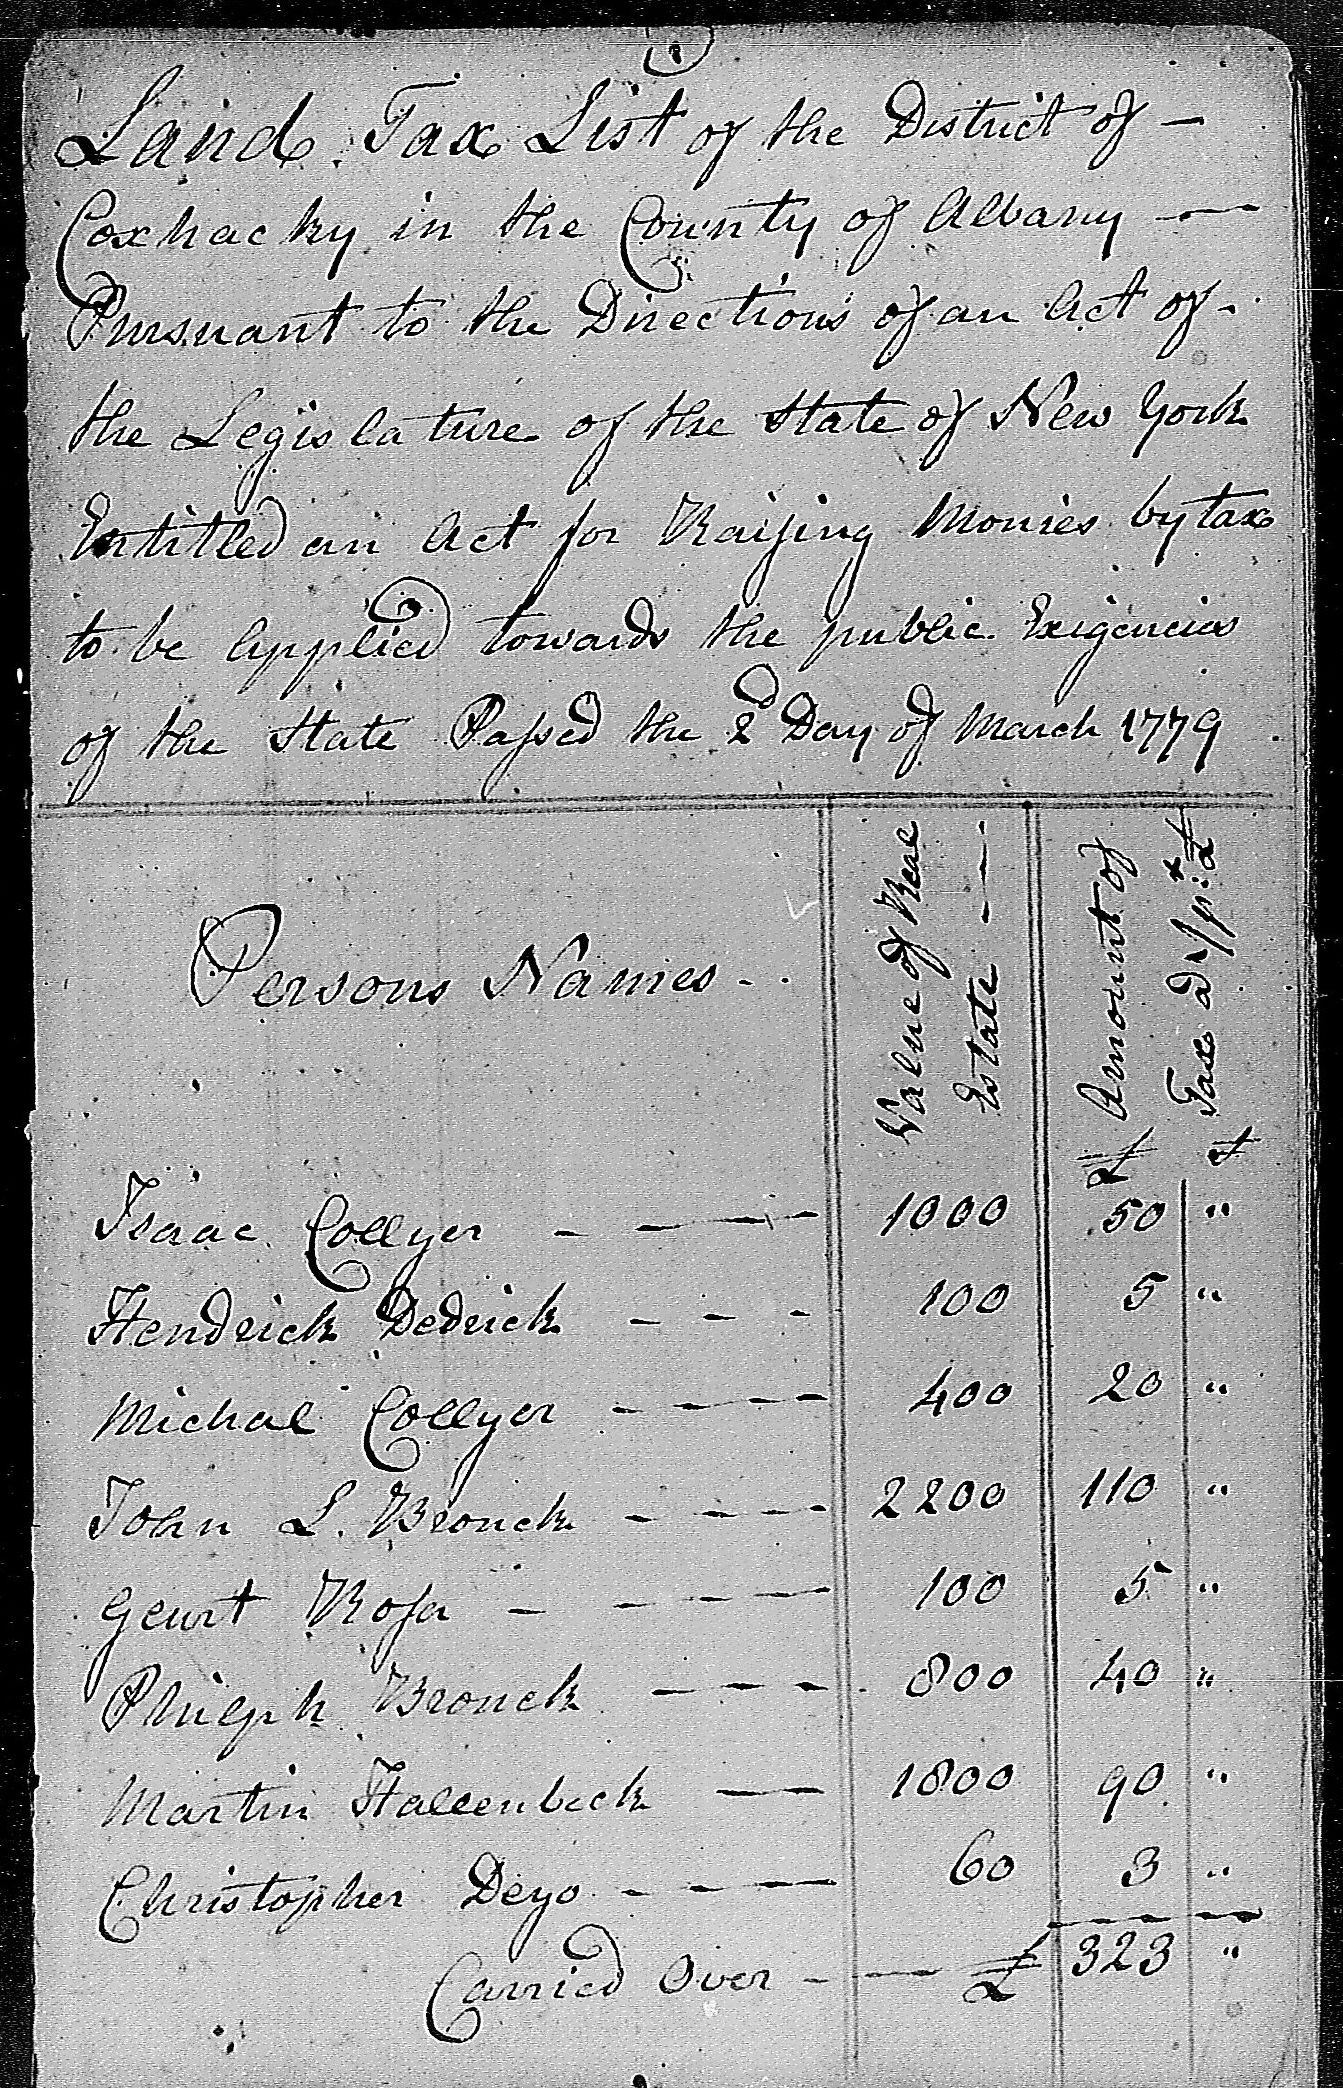 1
Land Tax List of the District of —
Coxhacky in the County of Albany —
Pursuant to the Directions of an Act of -
the Legislature of the State of New York
Entitled an Act for Raising Monies by tax
to be Applied towards the public Exigencies
of the State Passed the 2d Day of March 1779
Persons Names - Value of Real Estate — Amount of Tax a 1/ pr £
£ s
Isaac Collyer - — 1000 50 "
Hendrick Dedrick - - - 100 5 "
Michal Collyer - - - - 400 20 "
John L. Bronck - - - - 2200 110 "
Geurt Rosa - - - - 100 5 "
Philiph Bronck - - - 800 40 "
Martin Hallenbeck — — 1800 90 "
Christopher Deyo - - — 60 3 "
Carried Over - — — £ 323 "